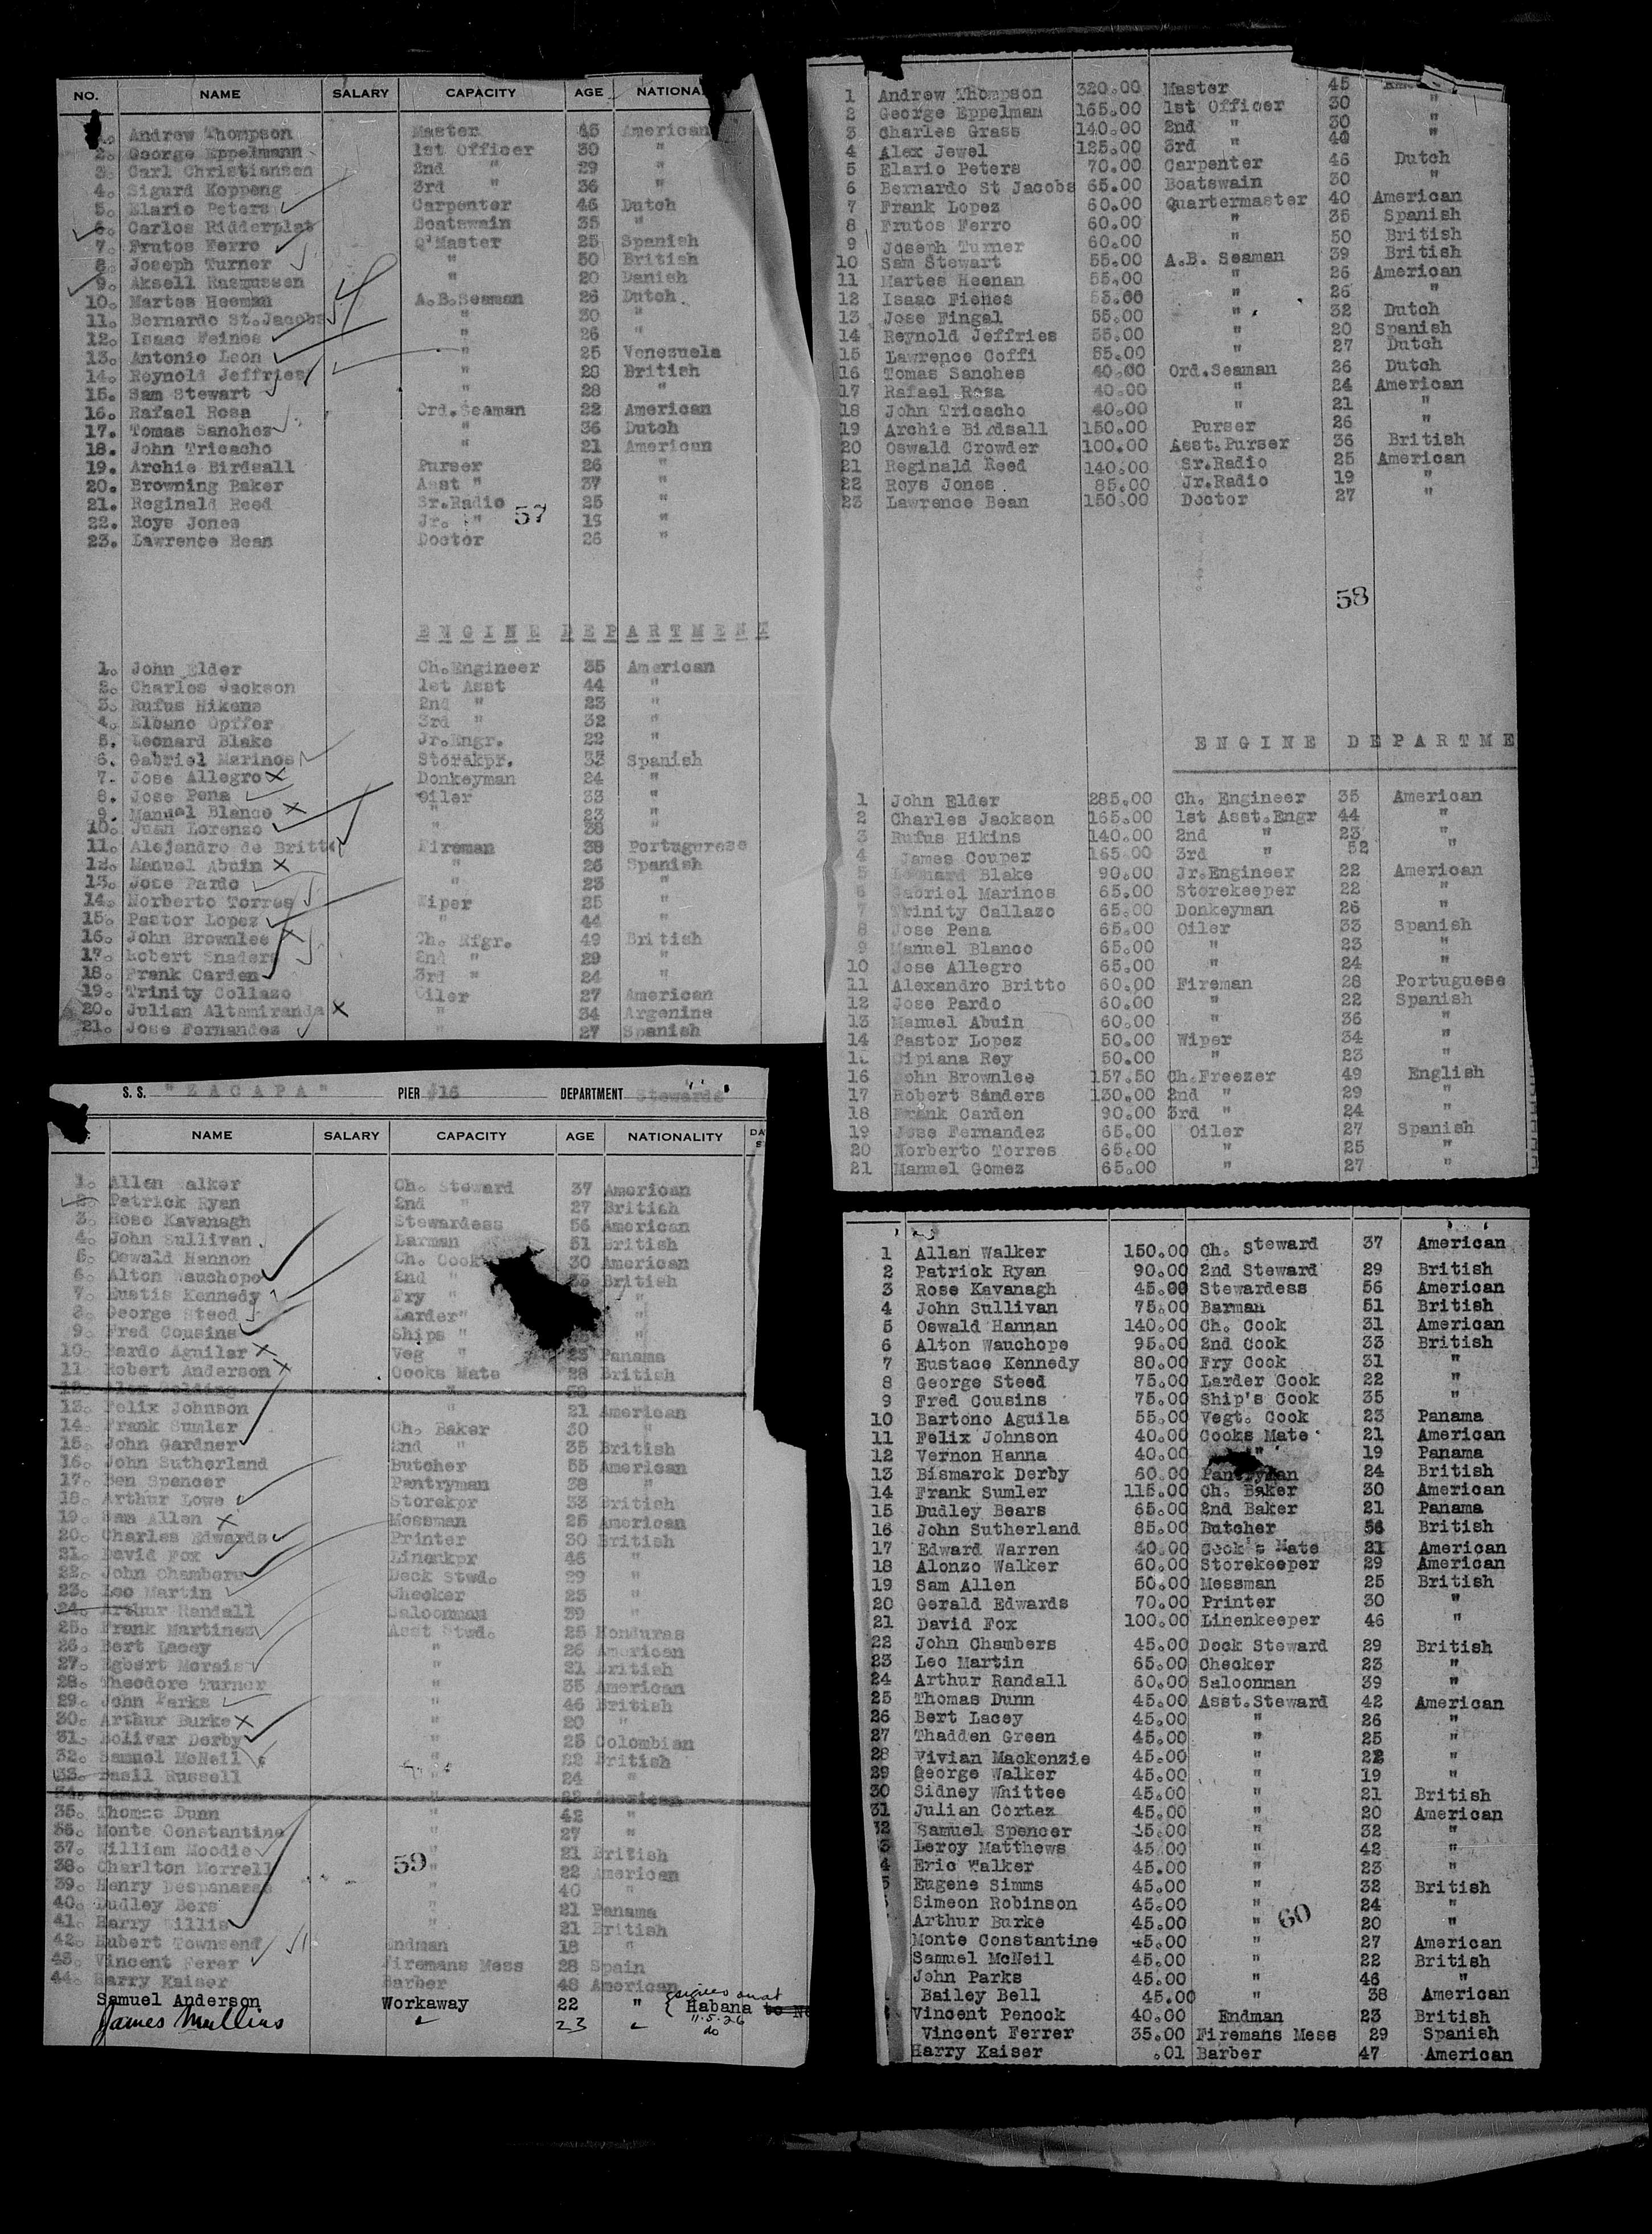 NO. NAME SALARY CAPACITY AGE NATIONA
1. Andrew Thompson Master 45 American
2. George Eppelmann 1st Officer 30 "
3. Carl Christiansen 2nd " 29 "
4. Sigurd Koppeng 3rd " 36 "
5. Elario Peters Carpenter 46 Dutch
6. Carlos Ridderplat Boatswain 35 "
7. Frutos Ferro Q'Master 25 Spanish
8. Joseph Turner " 50 British
9. Aksell Rasmussen " 20 Danish
10. Martes Heeman A.B.Seaman 26 Dutch
11. Bernardo St.Jacobs " 30 "
12. Isaac Feines " 26 "
13. Antonio Leon " 25 Venezuela
14. Reynold Jeffries " 20 British
15. Sam Stewart " 28 "
16. Rafael Rosa Ord.Seaman 22 American
17. Tomas Sanchez " 36 Dutch
18. John Tricacho " 21 American
19. Archie Birdsall Purser 26 "
20. Browning Baker Asst " 37 "
21. Reginald Reed Sr.Radio 25 "
22. Roys Jones Jr. " 19 "
57
23. Lawrence Bean Doctor 26 "
ENGINE DEPARTMENT
1. John Elder Ch.Engineer 35 American
2. Charles Jackson 1st Asst 44 "
3. Rufus Hikens 2nd " 23 "
4. Elbano Opffer 3rd " 32 "
5. Leonard Blake Jr.Engr. 22 "
6. Gabriel Marinos Storekpr. 33 Spanish
7. Jose Allegro Donkeyman 24 "
8. Jose Pena Oiler 33 "
9. Manuel Blanco " 23 "
10. Juan Lorenzo " 38 "
11. Alejandro de Britto Fireman 38 Portugurese
12. Manuel Abuin " 26 Spanish
13. Jose Pardo " 23 "
14. Norberto Torres Wiper 25 "
15. Pastor Lopez " 44 "
16. John Brownlee Ch. Rfgr. 49 British
17. Robert Snaders 2nd " 29 "
18. Frank Carden 3rd " 24 "
19. Trinity Collazo Oiler 27 American
20. Julian Altamiranda " 34 Argenina
21. Jose Fernandez " 27 Spanish
1 Andrew Thompson 320.00 Master 45
2 George Eppelman 165.00 1st Officer 30 "
3 Charles Grass 140.00 2nd " 30 "
4 Alex Jewel 125.00 3rd " 40 "
5 Elario Peters 70.00 Carpenter 46 Dutch
6 Bernardo St Jacobs 65.00 Boatswain 30 "
7 Frank Lopez 60.00 Quartermaster 40 American
8 Frutos Ferro 60.00 " 35 Spanish
9 Joseph Turner 60.00 " 50 British
10 Sam Stewart 55.00 A.B. Seaman 39 British
11 Martes Heenan 55.00 " 26 American
12 Isaac Fienes 55.00 " 26 "
13 Jose Fingal 55.00 " 32 Dutch
14 Reynold Jeffries 55.00 " 20 Spanish
15 Lawrence Coffi 55.00 " 27 Dutch
16 Tomas Sanches 40.00 Ord.Seaman 26 Dutch
17 Rafael Rosa 40.00 " 24 American
18 John Tricacho 40.00 " 21 "
19 Archie Birdsall 150.00 Purser 26 "
20 Oswald Crowder 100.00 Asst.Purser 36 British
21 Reginald Reed 140.00 Sr.Radio 25 American
22 Roys Jones 85.00 Jr.Radio 19 "
23 Lawrence Bean 150.00 Doctor 27 "
58
ENGINE DEPARTME
1 John Elder 285.00 Ch. Engineer 35 American
2 Charles Jackson 165.00 1st Asst.Engr 44 "
3 Rufus Hikins 140.00 2nd " 23 "
4 James Couper 165.00 3rd " 52 "
5 Leonard Blake 90.00 Jr.Engineer 22 American
6 Gabriel Marinos 65.00 Storekeeper 22 "
7 Trinity Callazo 65.00 Donkeyman 26 "
8 Jose Pena 65.00 Oiler 33 Spanish
9 Manuel Blanco 65.00 " 23 "
10 Jose Allegro 65.00 " 24 "
11 Alexandro Britto 60.00 Fireman 28 Portuguese
12 Jose Pardo 60.00 " 22 Spanish
13 Manuel Abuin 60.00 " 36 "
14 Pastor Lopez 50.00 Wiper 34 "
Cipiana Rey 50.00 " 23 "
16 John Brownlee 157.50 Ch.Freezer 49 English
17 Robert Sanders 130.00 2nd " 29 "
18 Frank Carden 90.00 3rd " 24 "
19 Jose Fernandez 65.00 Oiler 27 Spanish
20 Norberto Torres 65.00 " 25 "
21 Manuel Gomez 65.00 " 27 "
S. S. "ZACAPA" PIER #16 DEPARTMENT Stewards
NAME SALARY CAPACITY AGE NATIONALITY
1. Allen Walker Ch. Steward 37 American
2. Patrick Ryan 2nd " 27 British
3. Rose Kavanagh Stewardess 56 American
4. John Sullivan Barman 51 British
5. Oswald Hannon Ch. Cook 30 American
6. Alton Wauchope 2nd " British
7. Eustis Kennedy Fry " "
8. George Steed Larder" "
9. Fred Cousins Ships " "
10. Bardo Aguilar Veg " 23 Panama
11 Robert Anderson Cooks Mate 28 British
12.
13. Felix Johnson " 21 American
14. Frank Sumler Ch. Baker 30 "
15. John Gardner 2nd " 35 British
16. John Sutherland Butcher 55 American
17. Ben Spencer Pantryman 38 "
18. Arthur Lowe Storekpr 33 British
19. Sam Allen Messman 25 American
20. Charles Edwards Printer 30 British
21. David Fox Linenkpr 46 "
22. John Chambers Deck Stwd. 29 "
23. Leo Martin Checker 23 "
24. Arthur Randall Saloonman 39 "
25. Frank Martinez Asst Stwd. 25 Honduras
26. Bert Lacey " 26 American
27. Egbert Morais " 21 British
28. Theodore Turner " 35 American
29. John Parks " 46 British
30. Arthur Burke " 20 "
31. Bolivar Derby " 25 Colombian
32. Samuel McNeil " 22 British
33. Basil Russell " 24 "
34. Samuel Anderson " 22 American
35. Thomas Dunn " 42 "
36. Monte Constantine " 27 "
37. William Moodie " 21 British
38. Charlton Morrell " 22 American
59
39. Henry Despanazas " 40 "
40. Dudley Bers " 21 Panama
41. Harry Willis " 21 British
42. Hubert Townsend Endman 18 "
43. Vincent Ferer Firemans Mess 28 Spain
44. Harry Kaiser Barber 48 American
Samuel Anderson Workaway 22 " signed on at Habana to N
James Mullins " 23 " 11.5.26 do
1 Allan Walker 150.00 Ch. Steward 37 American
2 Patrick Ryan 90.00 2nd Steward 29 British
3 Rose Kavanagh 45.00 Stewardess 56 American
4 John Sullivan 75.00 Barman 51 British
5 Oswald Hannan 140.00 Ch. Cook 31 American
6 Alton Wauchope 95.00 2nd Cook 33 British
7 Eustace Kennedy 80.00 Fry Cook 31 "
8 George Steed 75.00 Larder Cook 22 "
9 Fred Cousins 75.00 Ship's Cook 35 "
10 Bartono Aguila 55.00 Vegt. Cook 23 Panama
11 Felix Johnson 40.00 Cooks Mate 21 American
12 Vernon Hanna 40.00 " 19 Panama
13 Bismarck Derby 60.00 Pantryman 24 British
14 Frank Sumler 115.00 Ch. Baker 30 American
15 Dudley Bears 65.00 2nd Baker 21 Panama
16 John Sutherland 85.00 Butcher 56 British
17 Edward Warren 40.00 Cook's Mate 21 American
18 Alonzo Walker 60.00 Storekeeper 29 American
19 Sam Allen 50.00 Messman 25 British
20 Gerald Edwards 70.00 Printer 30 "
21 David Fox 100.00 Linenkeeper 46 "
22 John Chambers 45.00 Deck Steward 29 British
23 Leo Martin 65.00 Checker 23 "
24 Arthur Randall 60.00 Saloonman 39 "
25 Thomas Dunn 45.00 Asst.Steward 42 American
26 Bert Lacey 45.00 " 26 "
27 Thadden Green 45.00 " 25 "
28 Vivian Mackenzie 45.00 " 22 "
29 George Walker 45.00 " 19 "
30 Sidney Whittee 45.00 " 21 British
31 Julian Cortez 45.00 " 20 American
32 Samuel Spencer 45.00 " 32 "
3 Leroy Matthews 45.00 " 42 "
4 Eric Walker 45.00 " 23 "
5 Eugene Simms 45.00 " 32 British
Simeon Robinson 45.00 " 24 "
60
Arthur Burke 45.00 " 20 "
Monte Constantine 45.00 " 27 American
Samuel McNeil 45.00 " 22 British
John Parks 45.00 " 46 "
Bailey Bell 45.00 " 38 American
Vincent Penock 40.00 Endman 23 British
Vincent Ferrer 35.00 Firemans Mess 29 Spanish
Harry Kaiser .01 Barber 47 American